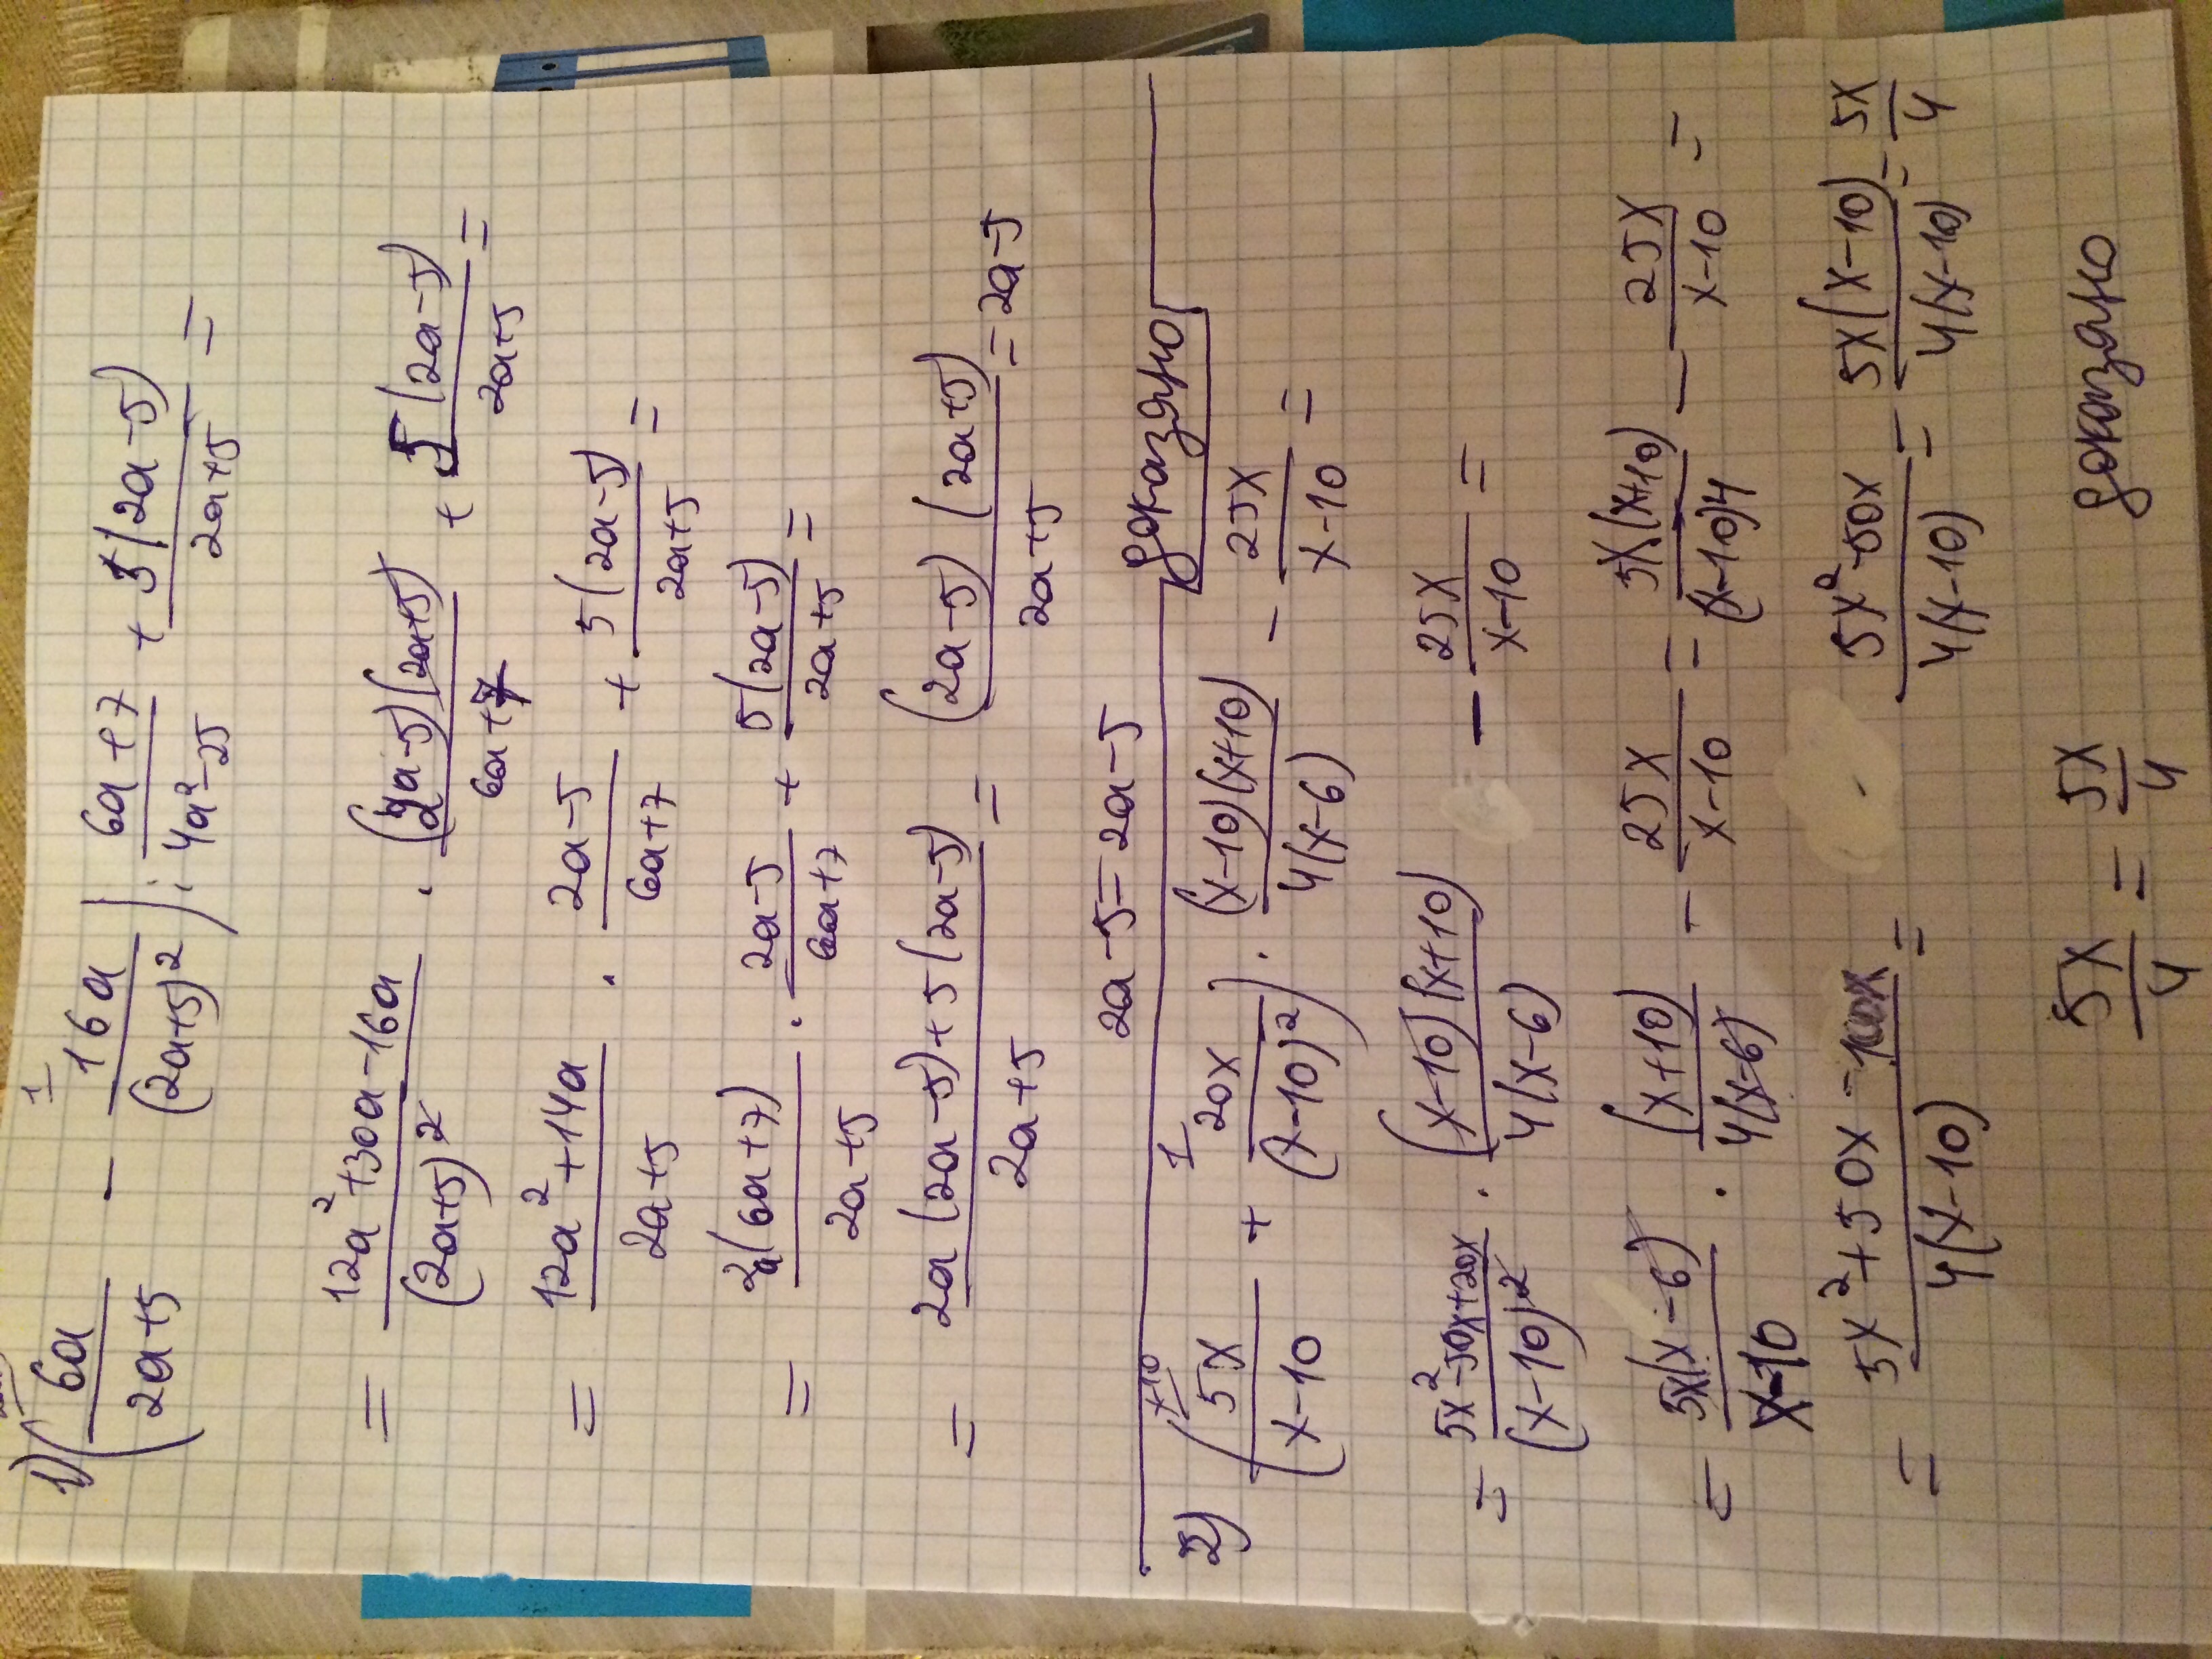 1) (6a/(2a+5) - 16a/(2a+5)²) : (6a+7)/(4a²-25) + 5(2a-5)/(2a+5) =
= (12a²+30a-16a)/(2a+5)² · (2a-5)(2a+5)/(6a+7) + 5(2a-5)/(2a+5) =
= (12a²+14a)/(2a+5) · (2a-5)/(6a+7) + 5(2a-5)/(2a+5) =
= 2a(6a+7)/(2a+5) · (2a-5)/(6a+7) + 5(2a-5)/(2a+5) =
= (2a(2a-5)+5(2a-5))/(2a+5) = (2a-5)(2a+5)/(2a+5) = 2a-5
2a-5=2a-5
доказано
2) (5x/(x-10) + 20x/(x-10)²) · (x-10)(x+10)/4(x-6) - 25x/(x-10) =
= (5x²-50x+20x)/(x-10)² · (x-10)(x+10)/4(x-6) - 25x/(x-10) =
= 5x(x-6)/(x-10) · (x+10)/4(x-6) - 25x/(x-10) = 5x(x+10)/(x-10)4 - 25x/(x-10) =
= (5x²+50x-100x)/4(x-10) = (5x²-50x)/4(x-10) = 5x(x-10)/4(x-10) = 5x/4
5x/4 = 5x/4 доказано